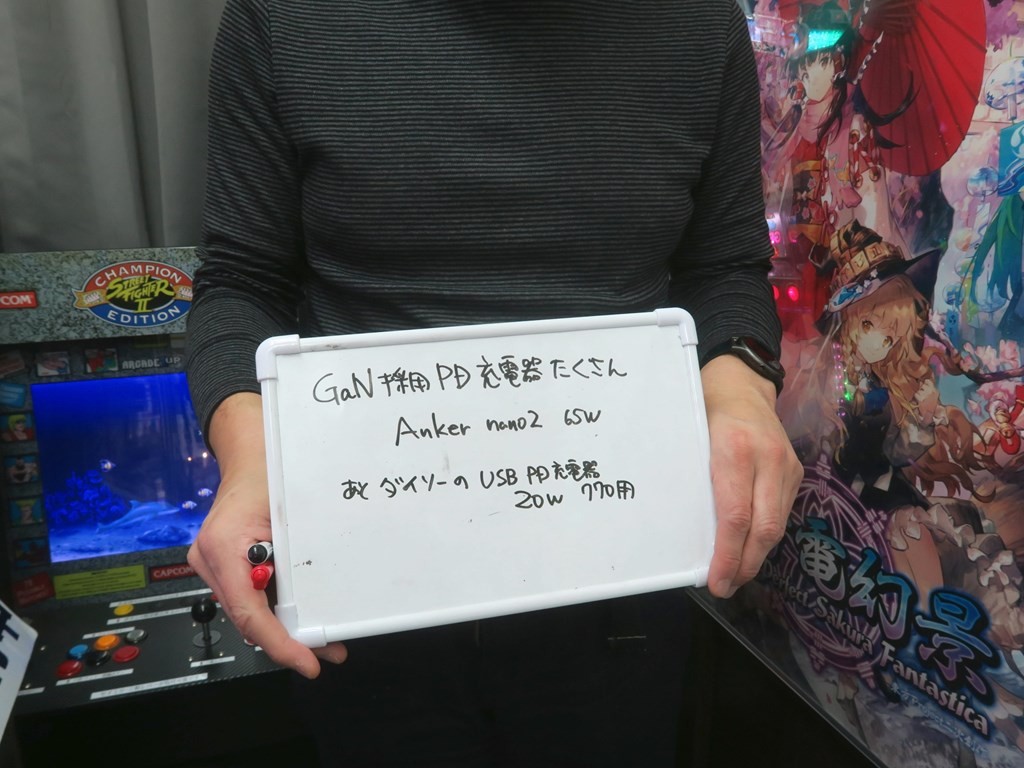 COM
CHAMPION
STREET
FIGHTER
II
EDITION
ARCADE UP
CAPCOM
GaN採用PD充電器たくさん
Anker nano2 65W
あとダイソーのUSB PD充電器
20W 770用
電幻景
Perfect Sakura Fantastica